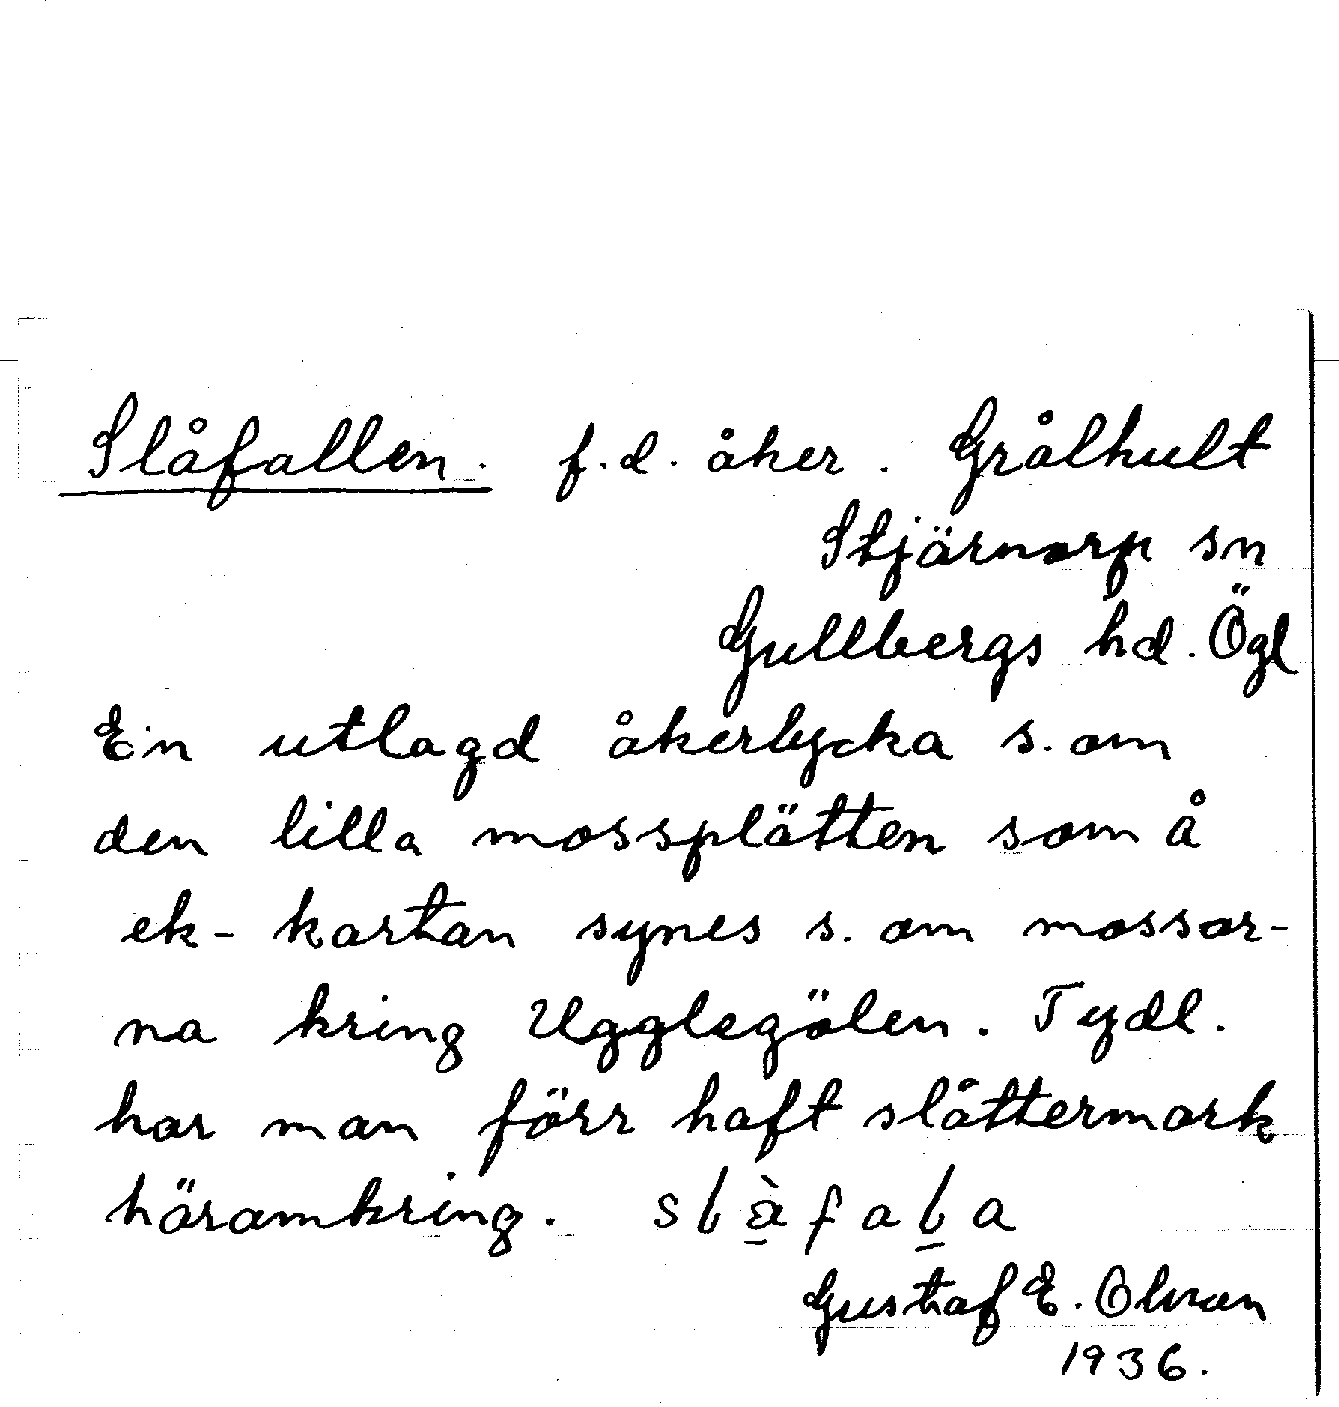 Slåfallen. f.d. åker. Grålhult
Stjärnorp sn
Gullbergs hd. Ögl
En utlagd åkerlycka s. om
den lilla mossplätten som å
ek-kartan synes s. om mossar-
na kring Ugglegölen. Tydl.
har man förr haft slåttermark
häromkring.
Gustaf E. Olson
1936.